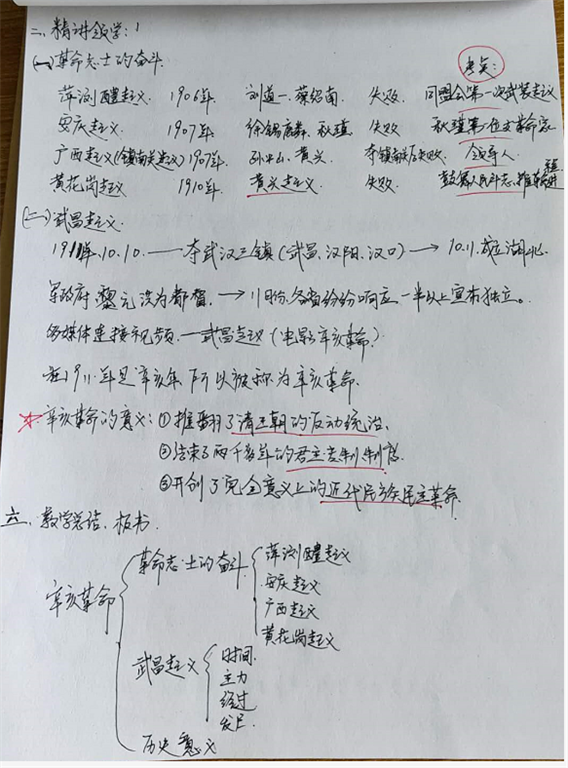 二、精讲领学:1
(一)革命志士的奋斗. 考点:
萍浏醴起义. 1906年. 刘道一.蔡绍南. 失败. 同盟会第一次武装起义
安庆起义. 1907年. 徐锡麟、秋瑾 失败 秋瑾第一位女革命家
广西起义(镇南关起义)1907年. 孙中山、黄兴 夺镇南关后失败. 领导人
黄花岗起义 1910年. 黄兴起义 失败. 鼓舞人民斗志,推
(二)武昌起义.
1911年.10.10.——夺武汉三镇(武昌、汉阳、汉口)→ 10.11.成立湖北
军政府,黎元洪为都督.→11月份,各省纷纷响应一半以上宣布独立。
多媒体连接视频.—武昌起义(电影辛亥革命)
1911.年是辛亥年所以被称为辛亥革命.
辛亥革命的意义:①推翻了清王朝的反动统治.
②结束了两千多年的君主专制制度.
③开创了完全意义上的近代民族民主革命.
六、教学总结、板书.
辛亥革命
革命志士的奋斗
萍浏醴起义
安庆起义
广西起义
黄花岗起义
武昌起义
时间.
主力
经过
发展.
历史意义